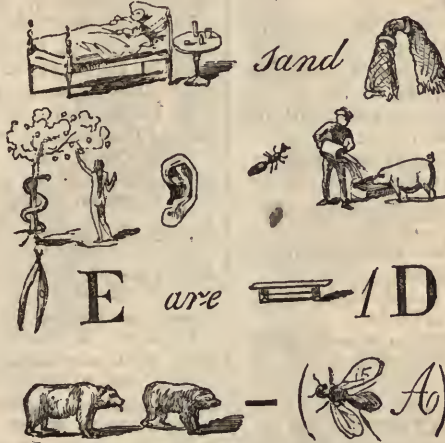 sand
E are 1 D
– ( A)